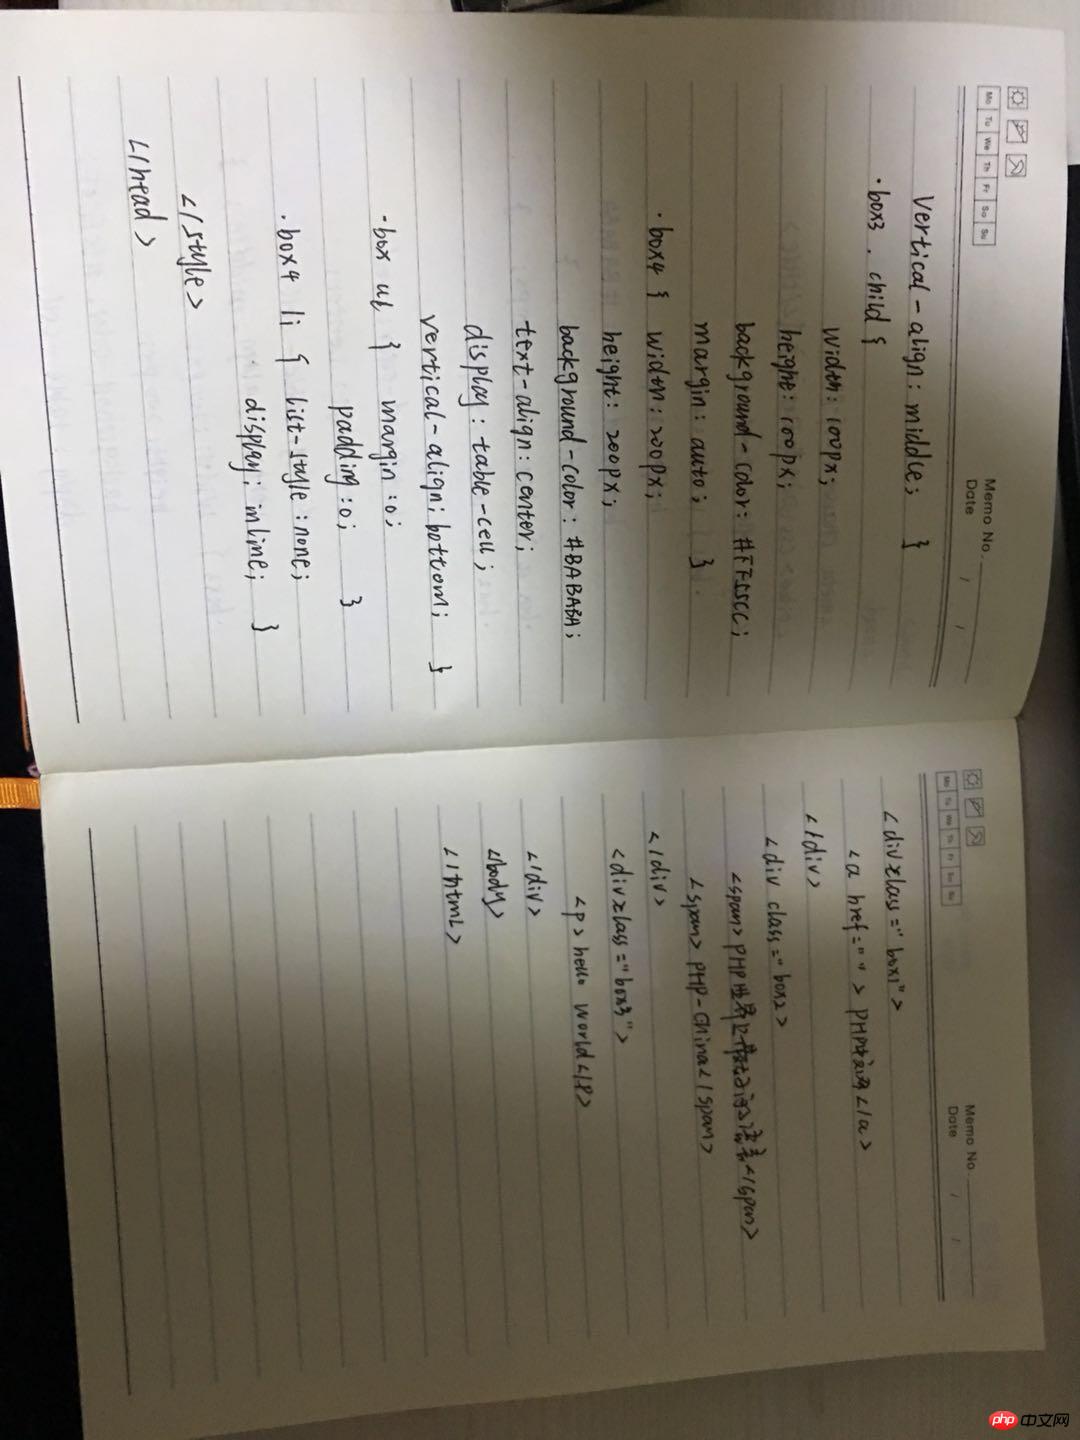 Mo Tu We Th Fr Sa Su
Memo No.
Date / /
vertical-align: middle; }
.box3 .child {
width: 100px;
height: 100px;
background-color: #FF55CC;
margin: auto; }
.box4 { width: 200px;
height: 200px;
background-color: #BABABA;
text-align: center;
display: table-cell;
vertical-align: bottom; }
.box ul { margin: 0;
padding: 0; }
.box4 li { list-style: none;
display: inline; }
</style>
</head>
Mo Tu We Th Fr Sa Su
Memo No.
Date / /
<div class="box1">
<a href=""> PHP中文网</a>
</div>
<div class="box2>
<span> PHP世界上最 </span>
<span> PHP-China</span>
</div>
<div class="box3">
<p> hello world</p>
</div>
</body>
</html>
php 中文网